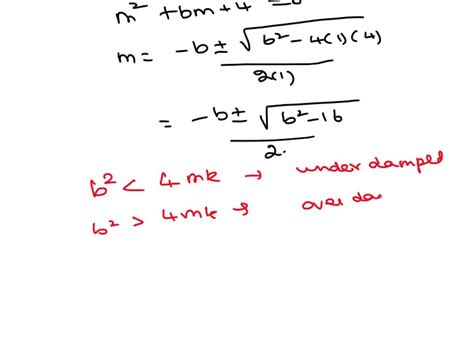 m² + bm + 4 = 0
m = -b ± √b² - 4(1)(4)
2(1)
= -b ± √b² - 16
2.
b² < 4mk → under damped
b² > 4mk → over da